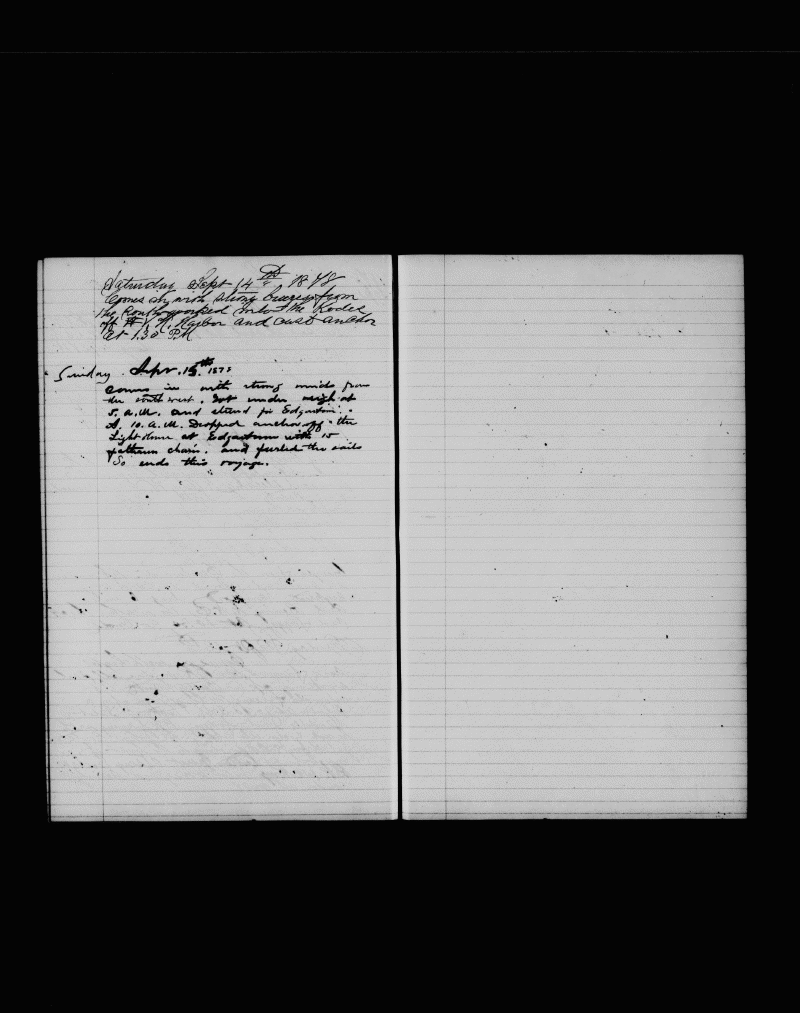 Saturday Sept 14th 1878
Comes in with strong breeze from
the South worked into the
off V. H. Harbor and cast anchor
at 1.30 P.M
Sunday Sep. 15th 1878
Comes in with strong winds from
the south west. Got under weigh at
5. A.M. and stood for Edgartown.
At 10. A.M. Dropped anchor off the
Light House at Edgartown with 15
fathoms chain. and furled the sails
So ends this voyage.